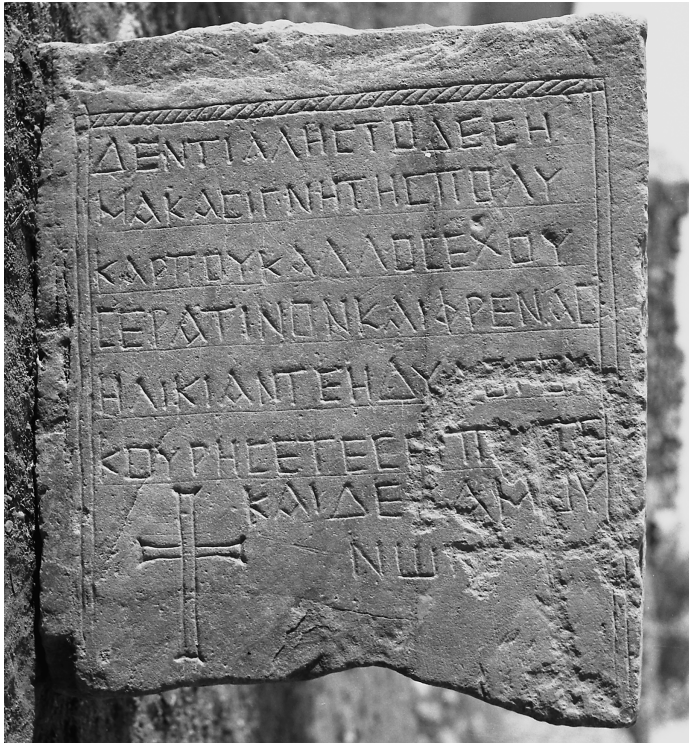 ΔΕΝΤΙΑΛΗϹΤΟΔΕϹΗ
ΜΑΚΑϹΙΓΝΗΤΗϹΠΟΛΥ
ΚΑΡΠΟΥΚΑΛΛΟϹΕΧΟΥ
ϹΕΡΑΤΙΝΟΝΚΑΙΦΡΕΝΑϹ
ΗΛΙΚΙΑΝΤΕΗΔΥ
ΚΟΥΡΗϹΕΤΕϹΕ Π ΤΕ
ΚΑΙΔΕ ΑΜΟΥ
ΝΩ